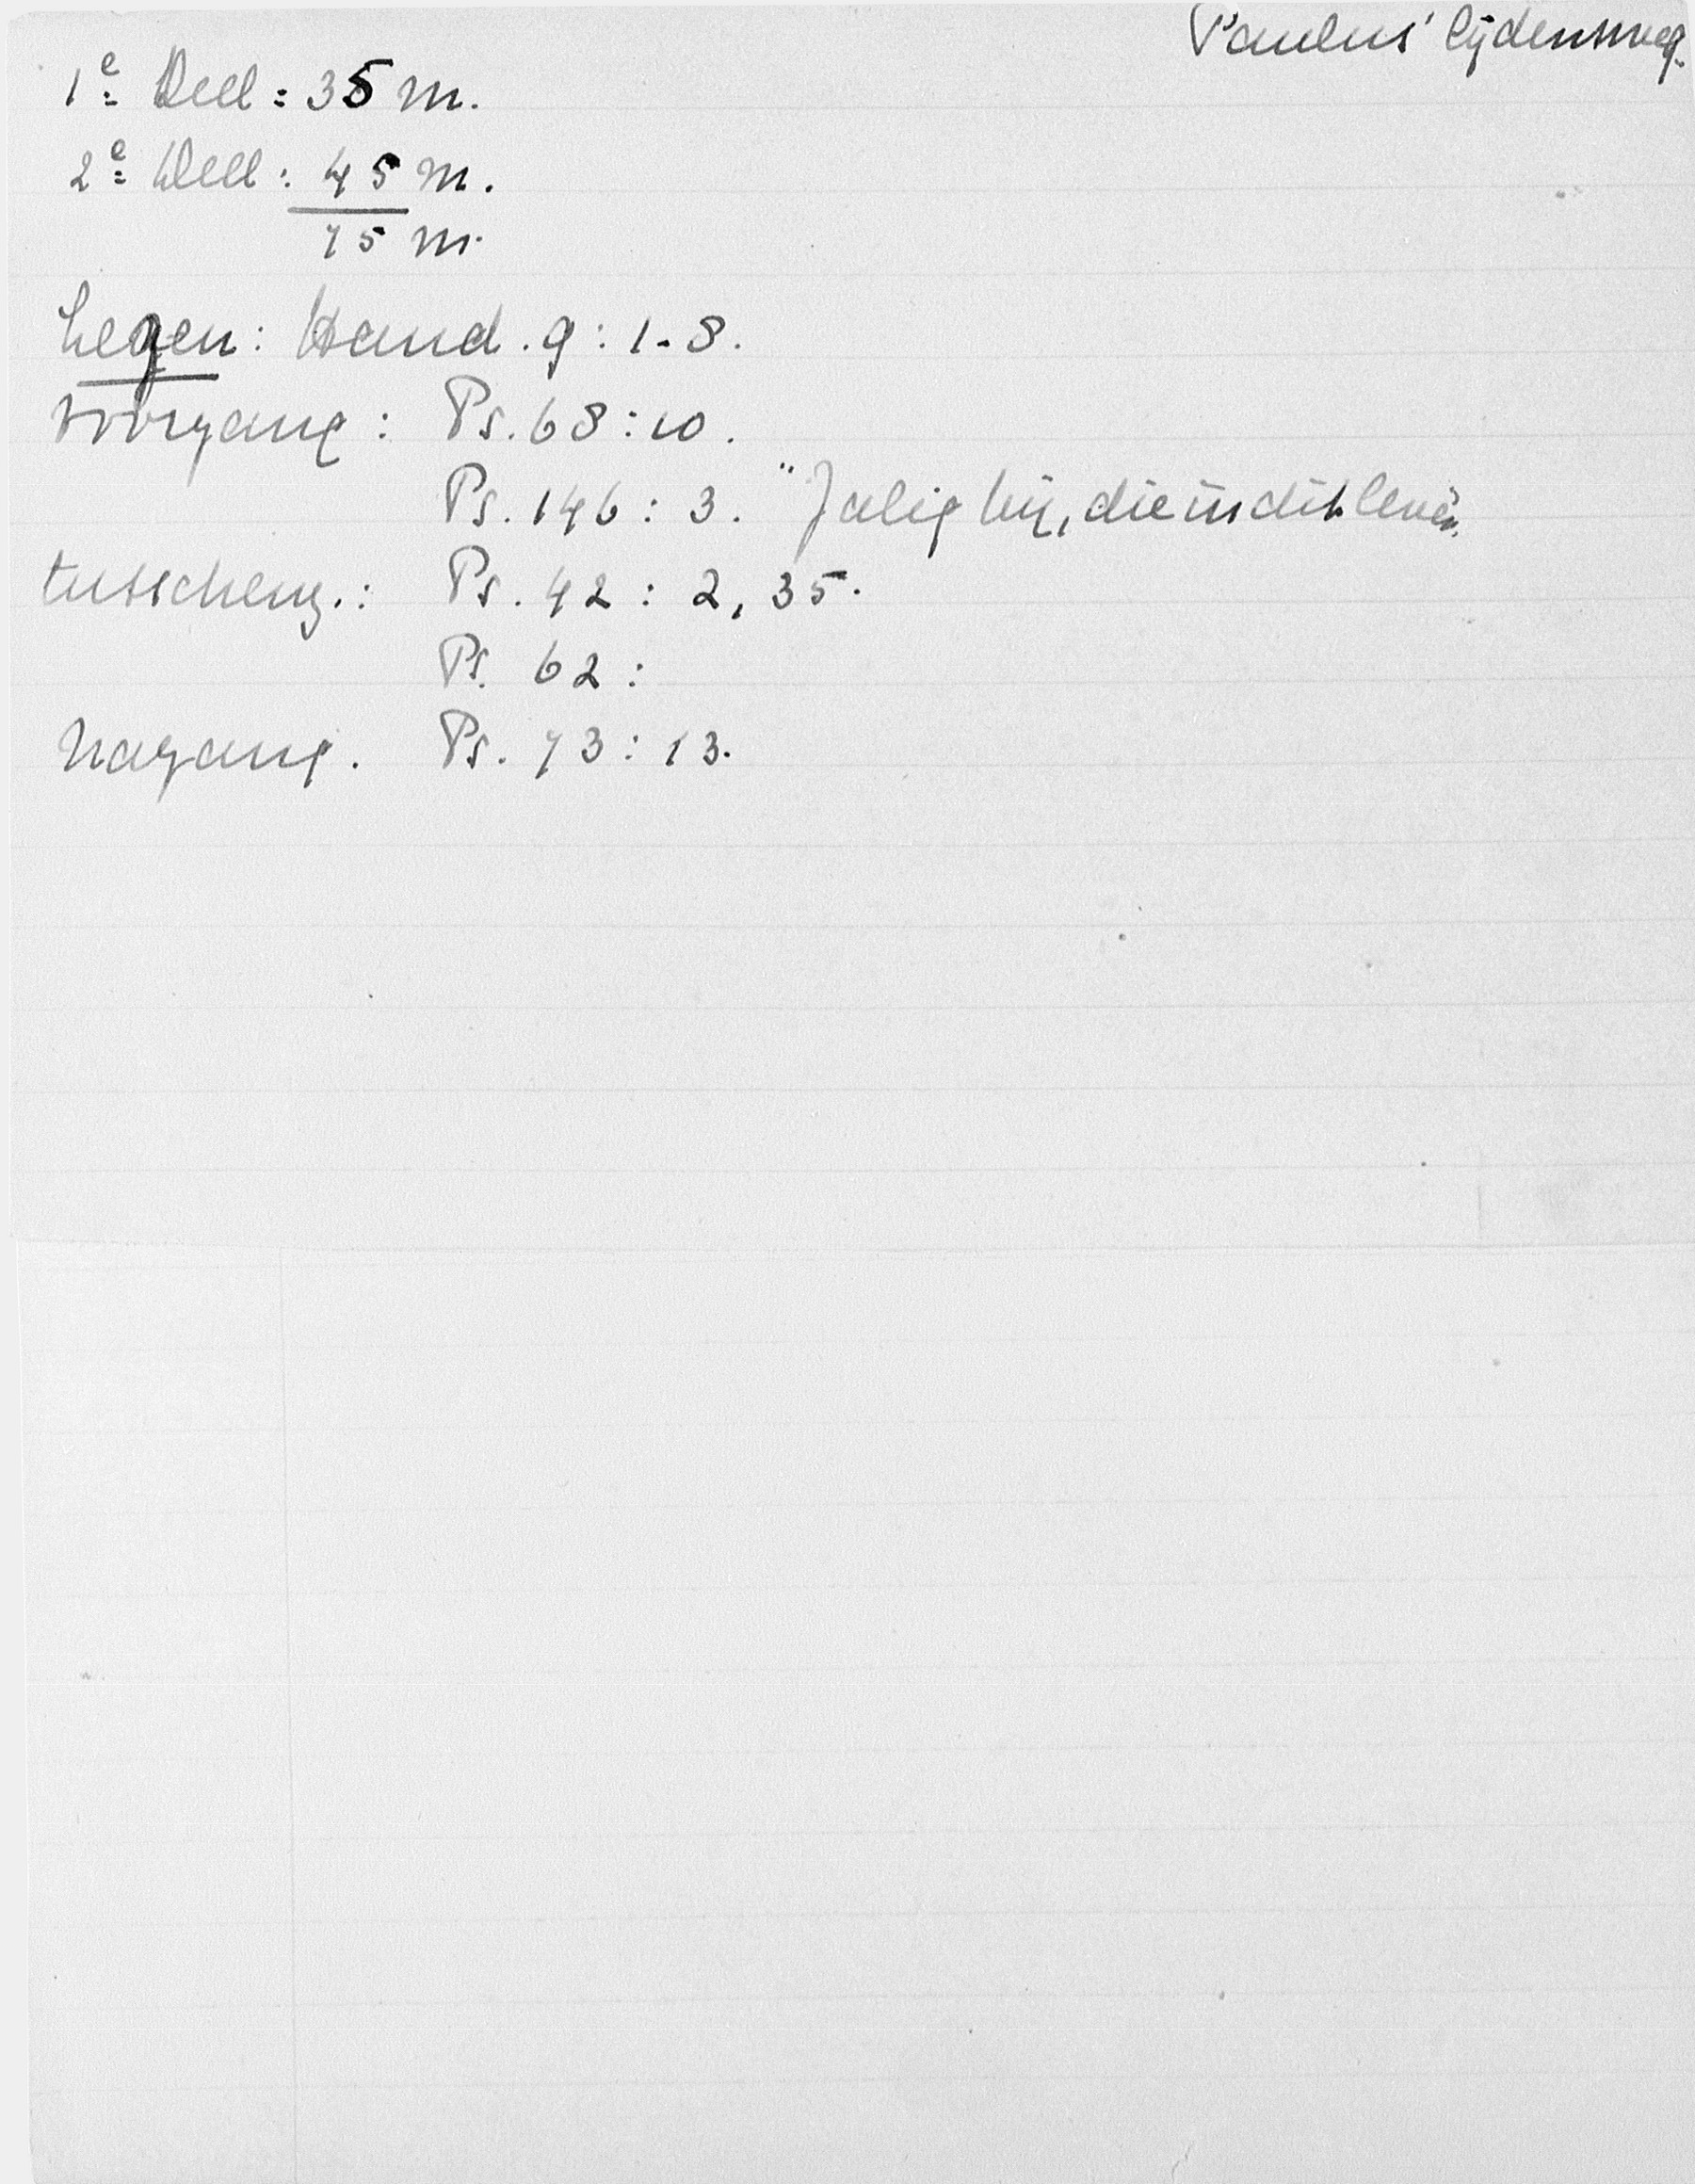 Paulus' lijdensweg.
1e Deel: 35 m.
2e Deel: 45 m.
75 m.
Lezen: Hand. 9: 1-8.
Voorzang: Ps. 68:10.
Ps. 146: 3. "Zalig hij, die in dit leven
tusschenz.: Ps. 42: 2, 35.
Ps. 62:
Nazang. Ps. 73: 13.